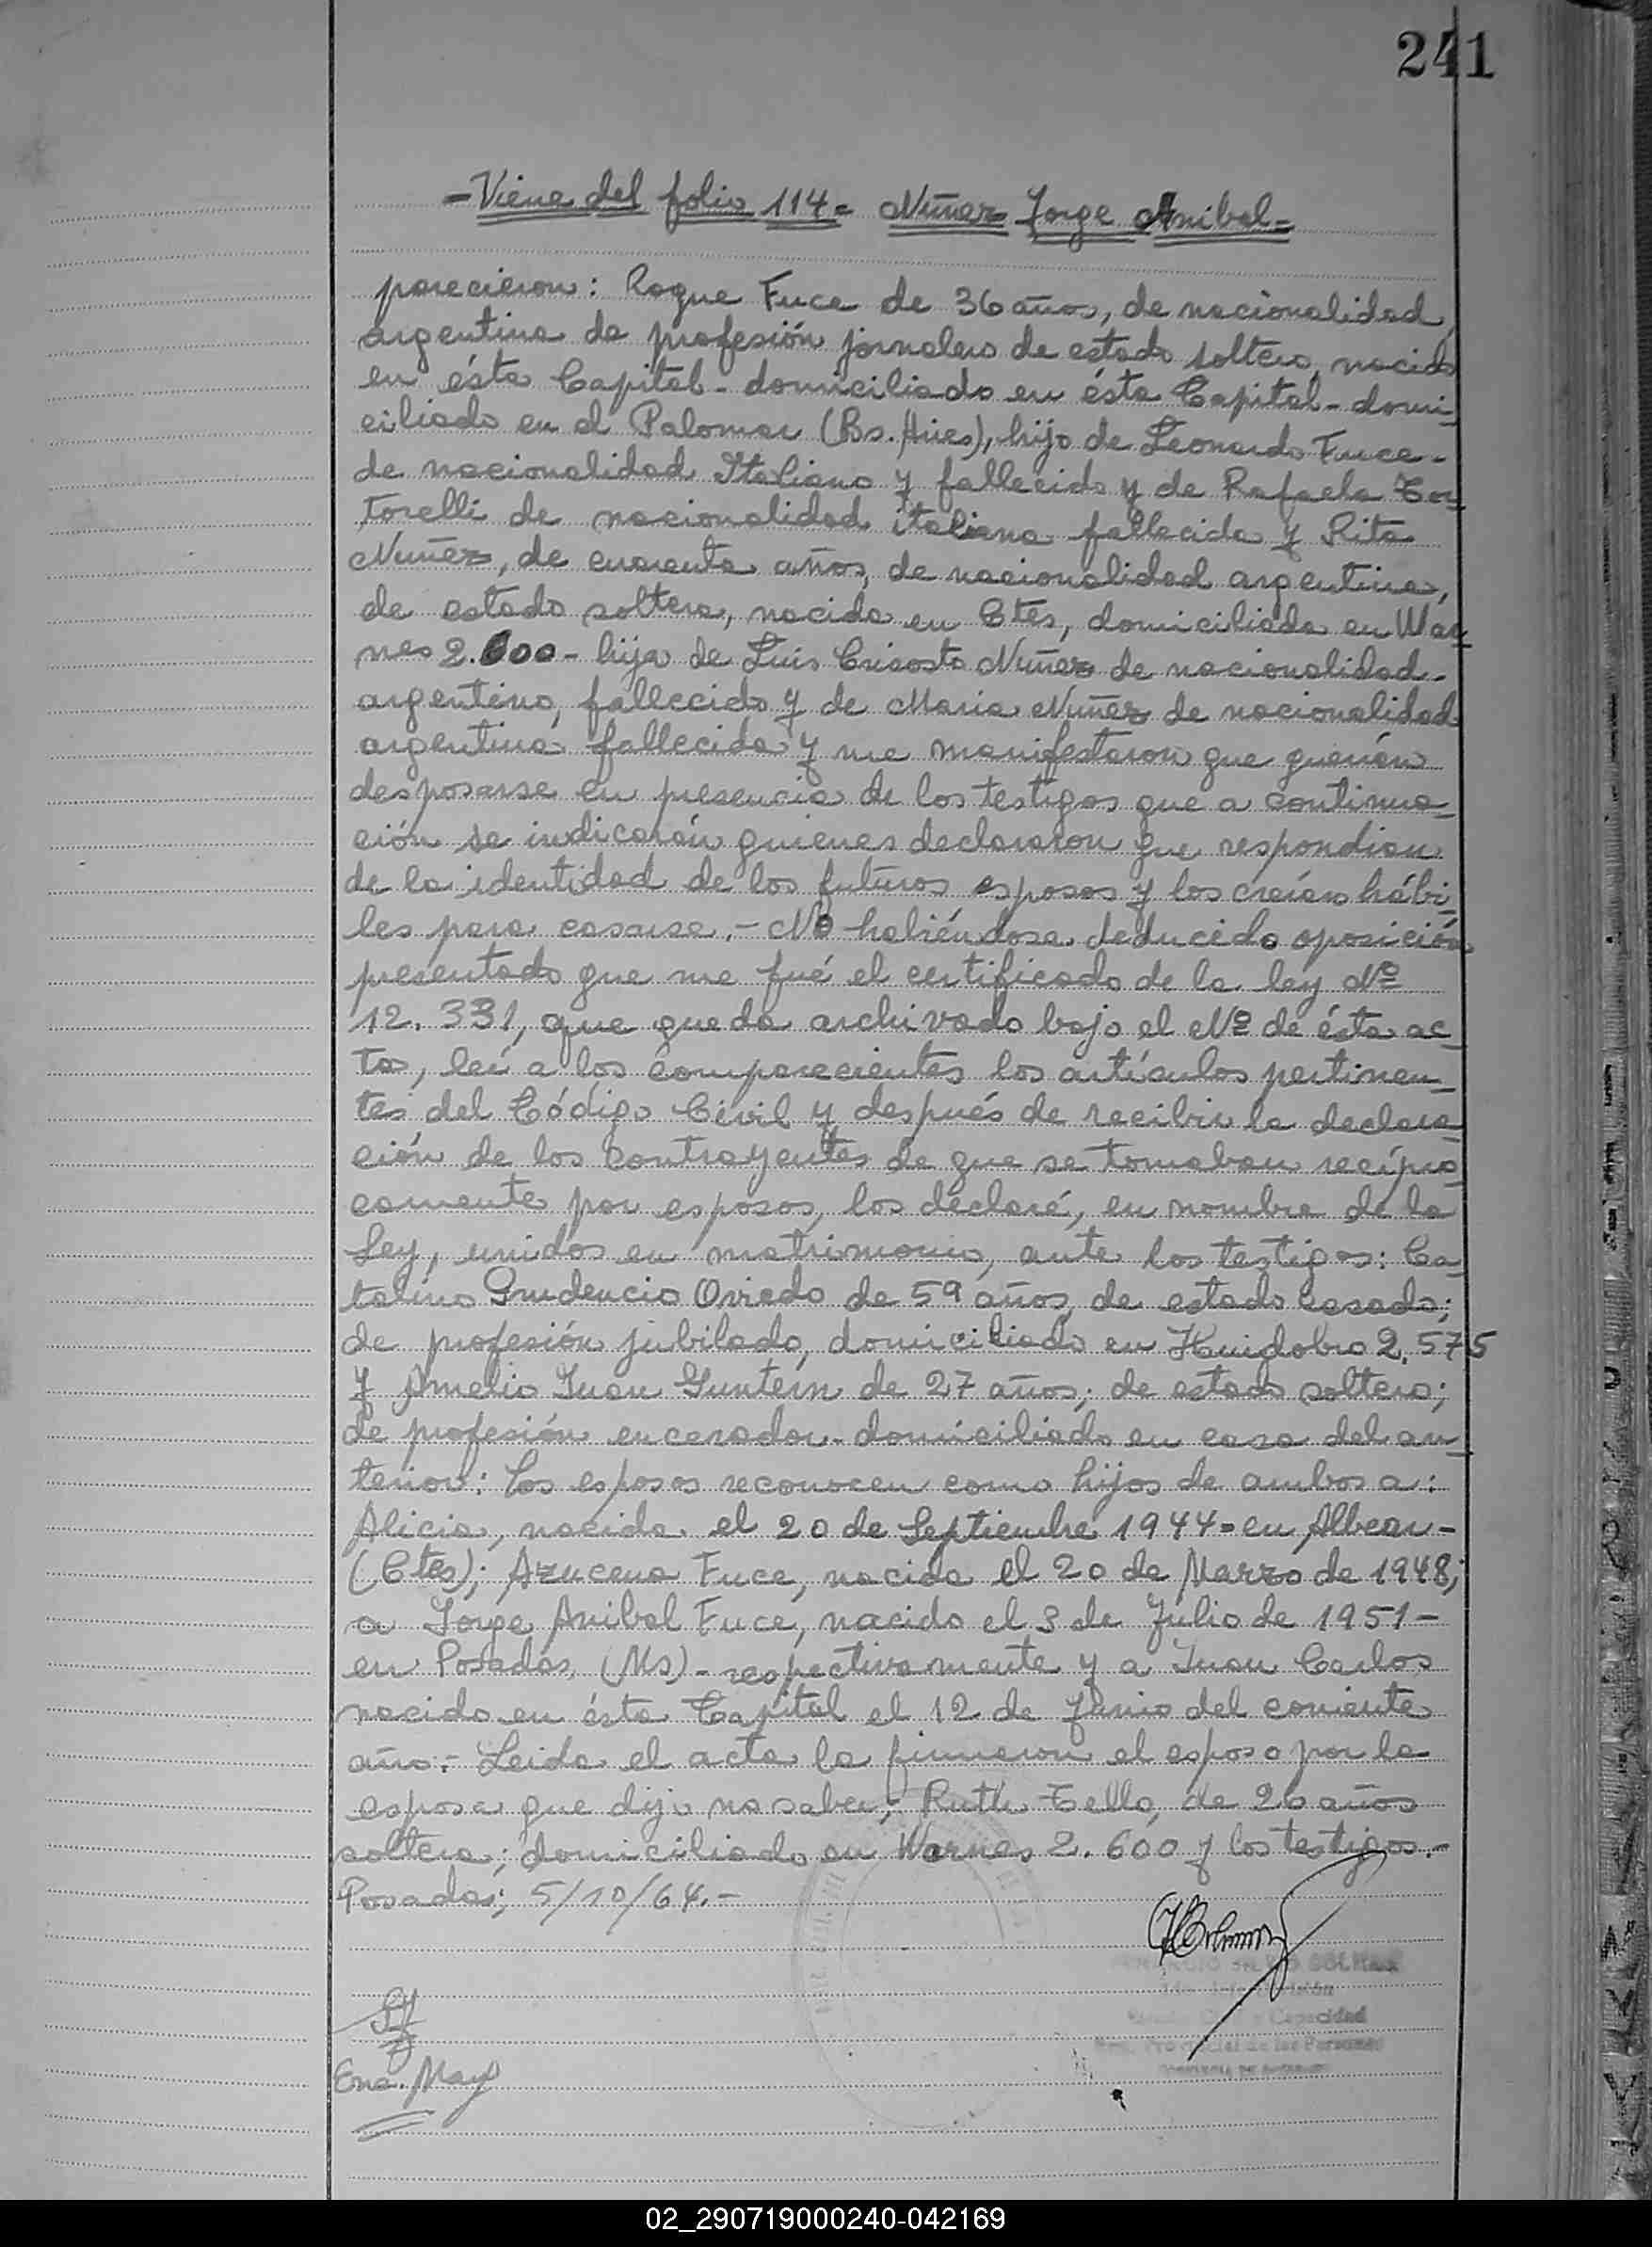 241
-Viene del folio 114- Nuñez Jorge Anibal-
parecieron: Roque Fuce de 36 años, de nacionalidad
argentina de profesión jornalero de estado soltero, nacido
en ésta Capital-domiciliado en ésta Capital-domi-
ciliado en el Palomar (Bs.Aires), hijo de Leonardo Fuce-
de nacionalidad Italiano y fallecido y de Rafaela
Torelli de nacionalidad italiana fallecida y Rita
Nuñez, de cuarenta años, de nacionalidad argentina,
de estado soltera, nacida en Ctes, domiciliada en War-
nes 2.600- hija de Luis Crisosto Nuñez de nacionalidad-
argentino, fallecido y de Maria Nuñez de nacionalidad
argentina fallecida y me manifestaron que querían
desposarse en presencia de los testigos que a continua-
ción se indicarán quienes declararon que respondian
de la identidad de los futuros esposos y los creían hábi-
les para casarse.- No habiéndose deducido oposición
presentado que me fué el certificado de la ley Nº
12.331, que queda archivado bajo el Nº de ésta ac-
ta, leí a los comparecientes los artículos pertinen-
tes del Código Civil y después de recibir la declara-
ción de los contrayentes de que se tomaban recípro-
camente por esposos, los declaré, en nombre de la
Ley, unidos en matrimonio, ante los testigos: Ca-
talino Prudencio Oviedo de 59 años, de estado casado;
de profesión jubilado, domiciliado en Huidobro 2.575
y Amelio Juan Guntern de 27 años; de estado soltero;
de profesión encerador-domiciliado en casa del an-
terior: Los esposos reconocen como hijos de ambos a:
Alicia, nacida el 20 de Septiembre 1944-en Albear-
(Ctes); Azucena Fuce, nacida el 20 de Marzo de 1948;
a Jorge Anibal Fuce, nacido el 3 de Julio de 1951-
en Posadas (Ms)-respectivamente y a Juan Carlos
nacido en ésta Capital el 12 de Junio del corriente
año.- Leida el acta la firmaron el esposo por la
esposa que dijo no saber; Ruth Tello, de 26 años
soltera; domiciliado en Warnes 2.600 y los testigos.-
Posadas; 5/10/64.-
Capacidad
de las Personas
Enc. May
02_290719000240-042169